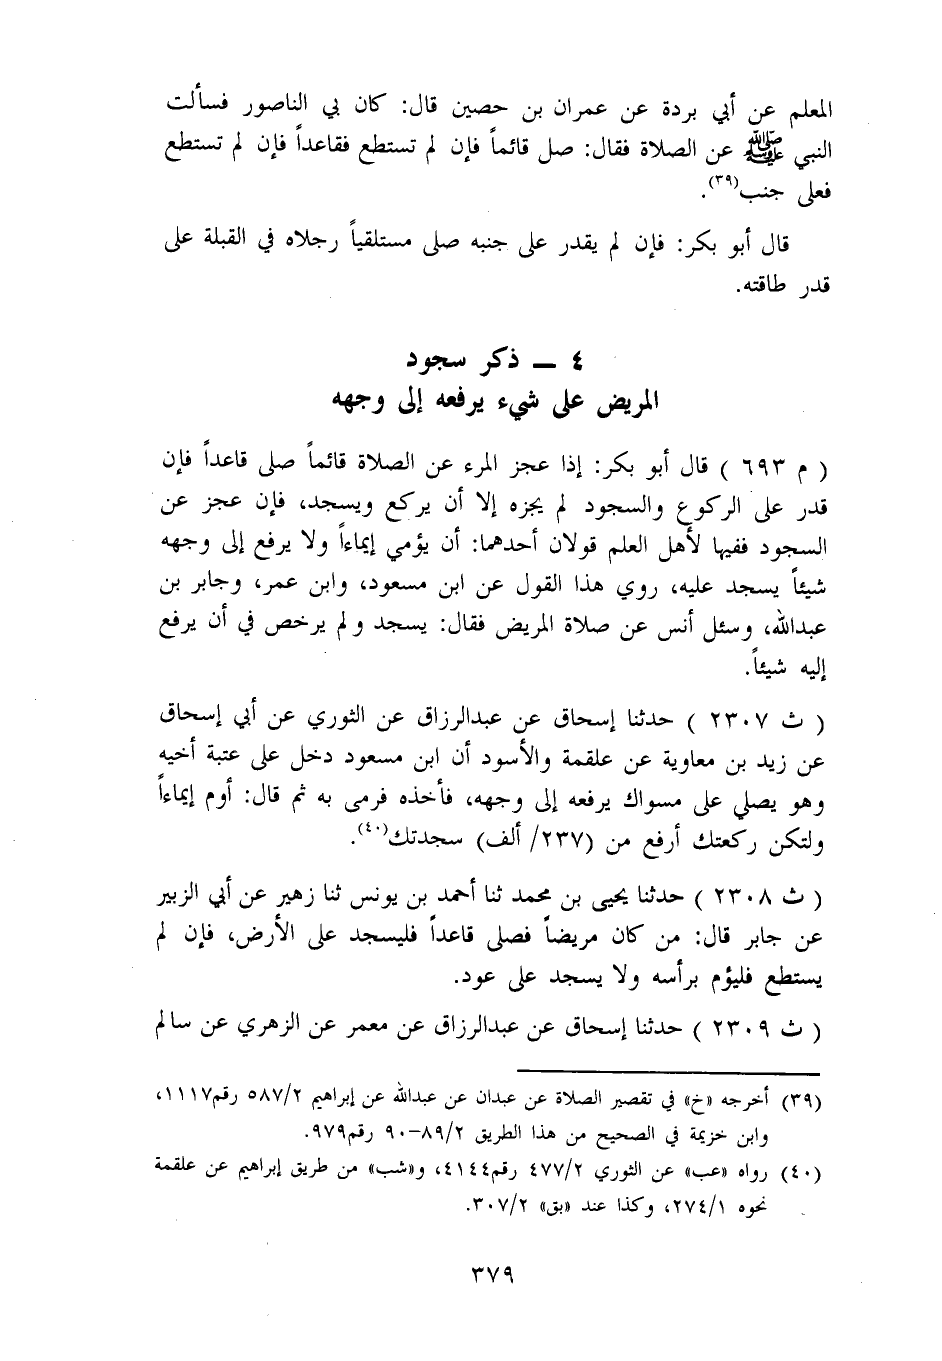 المعلم عن أبي بردة عن عمران بن حصين قال: كان بي الناصور فسألت
النبي ﷺ عن الصلاة فقال: صل قائماً فإن لم تستطع فقاعداً فإن لم تستطع
فعلى جنب(٣٩).
قال أبو بكر: فإن لم يقدر على جنبه صلى مستلقياً رجلاه في القبلة على
قدر طاقته.
٤ ـ ذكر سجود
المريض على شيء يرفعه إلى وجهه
( م ٦٩٣ ) قال أبو بكر: إذا عجز المرء عن الصلاة قائماً صلى قاعداً فإن
قدر على الركوع والسجود لم يجزه إلا أن يركع ويسجد، فإن عجز عن
السجود ففيها لأهل العلم قولان أحدهما: أن يؤمي إيماءاً ولا يرفع إلى وجهه
شيئاً يسجد عليه، روي هذا القول عن ابن مسعود، وابن عمر، وجابر بن
عبدالله، وسئل أنس عن صلاة المريض فقال: يسجد ولم يرخص في أن يرفع
إليه شيئاً.
( ث ٢٣٠٧ ) حدثنا إسحاق عن عبدالرزاق عن الثوري عن أبي إسحاق
عن زيد بن معاوية عن علقمة والأسود أن ابن مسعود دخل على عتبة أخيه
وهو يصلي على مسواك يرفعه إلى وجهه، فأخذه فرمى به ثم قال: أوم إيماءاً
ولتكن ركعتك أرفع من (٢٣٧/ ألف) سجدتك(٤٠).
( ث ٢٣٠٨ ) حدثنا يحيى بن محمد ثنا أحمد بن يونس ثنا زهير عن أبي الزبير
عن جابر قال: من كان مريضاً فصلى قاعداً فليسجد على الأرض، فإن لم
يستطع فليؤم برأسه ولا يسجد على عود.
( ث ٢٣٠٩ ) حدثنا إسحاق عن عبدالرزاق عن معمر عن الزهري عن سالم
(٣٩) أخرجه «خ» في تقصير الصلاة عن عبدان عن عبدالله عن إبراهيم ٥٨٧/٢ رقم١١١٧،
وابن خزيمة في الصحيح من هذا الطريق ٨٩/٢-٩٠ رقم٩٧٩.
(٤٠) رواه «عب» عن الثوري ٤٧٧/٢ رقم٤١٤٤، و«شب» من طريق إبراهيم عن علقمة
نحوه ٢٧٤/١، وكذا عند «بق» ٣٠٧/٢.
٣٧٩